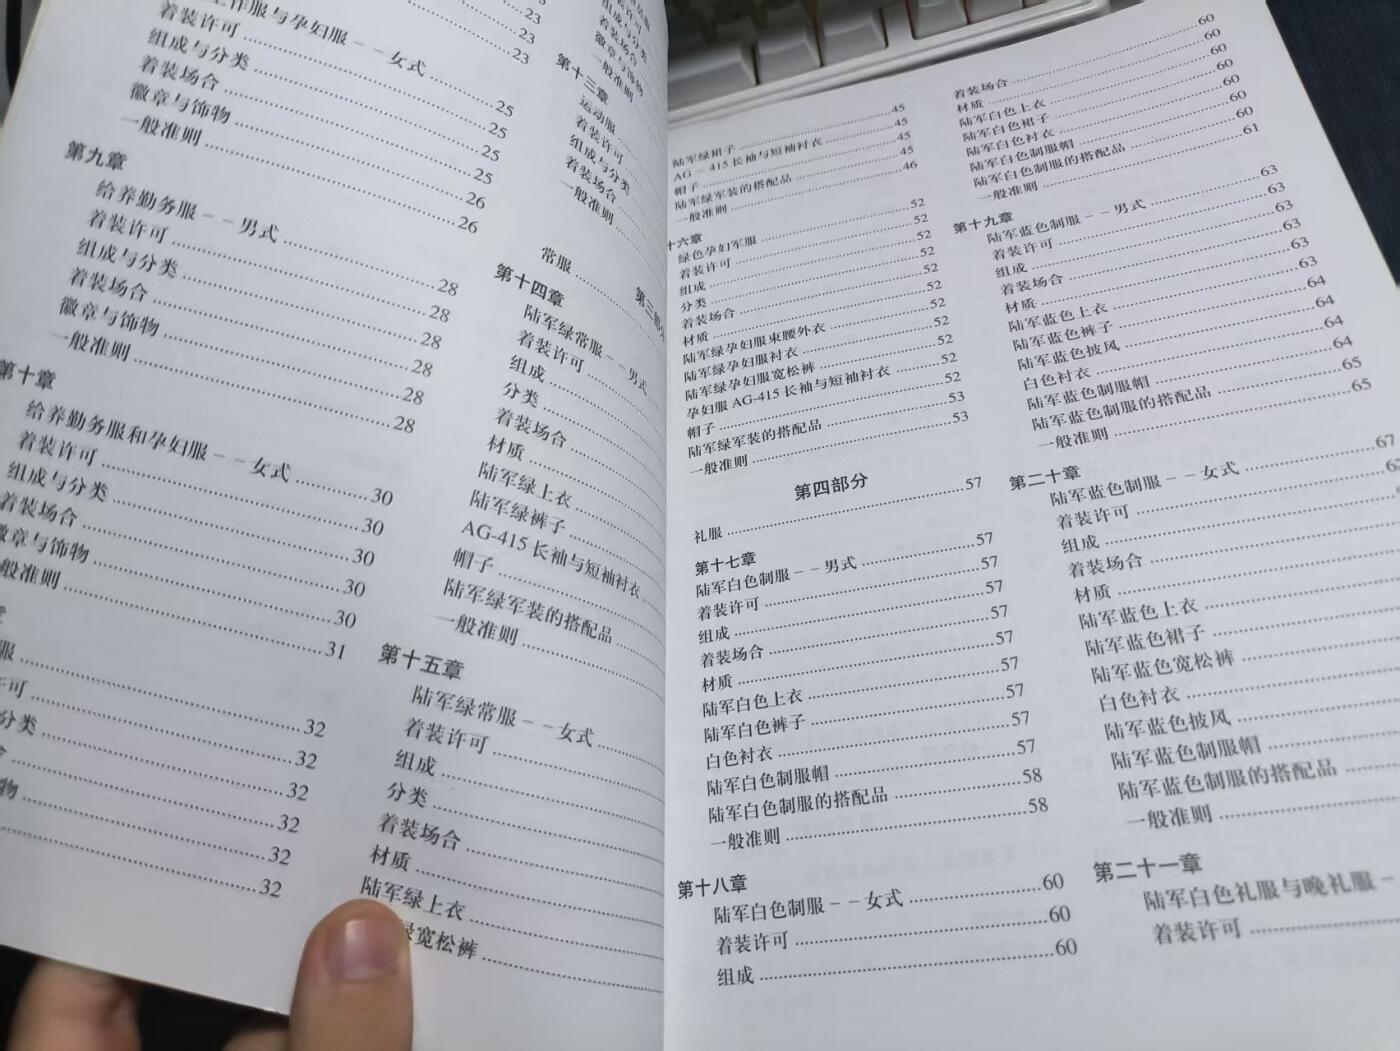 工作服与孕妇服－－女式
着装许可……23
组成与分类……25
着装场合……25
徽章与饰物……25
一般准则……25
26
26
第九章
给养勤务服－－男式……28
着装许可……28
组成与分类……28
着装场合……28
徽章与饰物……28
一般准则……28
第十章
给养勤务服和孕妇服－－女式……30
着装许可……30
组成与分类……30
着装场合……30
徽章与饰物……30
一般准则……31
服……32
许可……32
分类……32
32
物……32
32
组成与分类
着装场合
徽章与饰物
一般准则
第十三章
运动服
着装许可
组成与分类
着装场合
一般准则
第三部分
常服
第十四章
陆军绿常服－－男式
着装许可
组成
分类
着装场合
材质
陆军绿上衣
陆军绿裤子
AG-415 长袖与短袖衬衣
帽子
陆军绿军装的搭配品
一般准则
第十五章
陆军绿常服－－女式
着装许可
组成
分类
着装场合
材质
陆军绿上衣
绿宽松裤
陆军绿裙子……45
AG－415 长袖与短袖衬衣……45
帽子……45
陆军绿军装的搭配品……45
一般准则……46
十六章
绿色孕妇军服……52
着装许可……52
组成……52
分类……52
着装场合……52
材质……52
陆军绿孕妇服束腰外衣……52
陆军绿孕妇服衬衣……52
陆军绿孕妇服宽松裤……52
孕妇服 AG-415 长袖与短袖衬衣……52
帽子……52
陆军绿军装的搭配品……53
一般准则……53
第四部分
礼服……57
第十七章
陆军白色制服－－男式……57
着装许可……57
组成……57
着装场合……57
材质……57
陆军白色上衣……57
陆军白色裤子……57
白色衬衣……57
陆军白色制服帽……57
陆军白色制服的搭配品……58
一般准则……58
第十八章
陆军白色制服－－女式……60
着装许可……60
组成……60
着装场合……60
材质……60
陆军白色上衣……60
陆军白色裙子……60
陆军白色衬衣……60
陆军白色制服帽……60
陆军白色制服的搭配品……60
一般准则……61
第十九章
陆军蓝色制服－－男式……63
着装许可……63
组成……63
着装场合……63
材质……63
陆军蓝色上衣……64
陆军蓝色裤子……64
陆军蓝色披风……64
白色衬衣……64
陆军蓝色制服帽……65
陆军蓝色制服的搭配品……65
一般准则
第二十章
陆军蓝色制服－－女式……67
着装许可
组成
着装场合
材质
陆军蓝色上衣
陆军蓝色裙子
陆军蓝色宽松裤
白色衬衣
陆军蓝色披风
陆军蓝色制服帽
陆军蓝色制服的搭配品
一般准则
第二十一章
陆军白色礼服与晚礼服－
着装许可